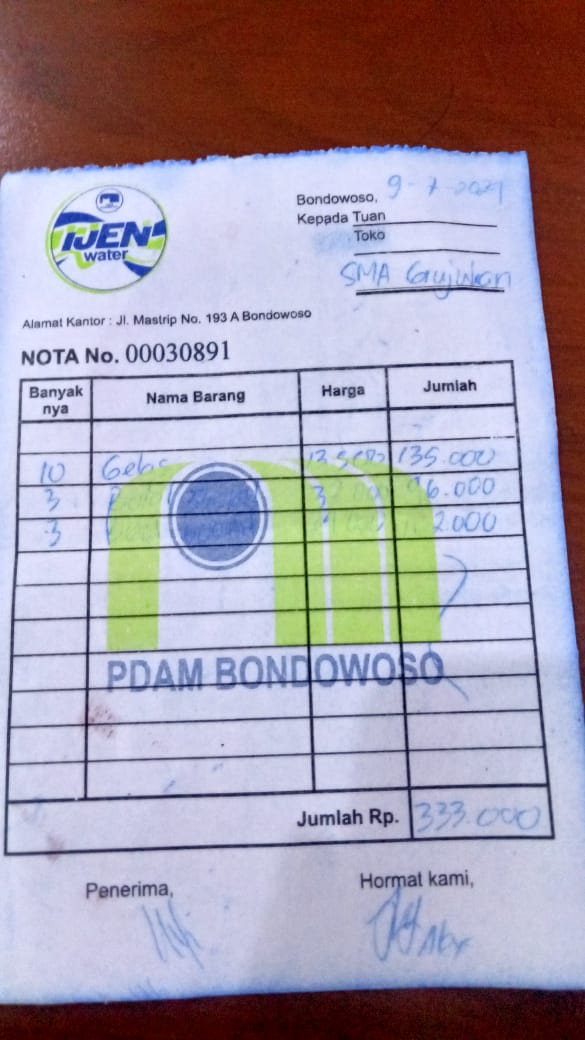 IJEN
water
Bondowoso, 9-7-2021
Kepada Tuan
Toko
SMA Grujukan
Alamat Kantor : Jl. Mastrip No. 193 A Bondowoso
NOTA No. 00030891
Banyak nya Nama Barang Harga Jumlah
10 Gelas 13.500 135.000
3 96.000
3 2.000
PDAM BONDOWOSO
Jumlah Rp. 333.000
Penerima, Hormat kami,